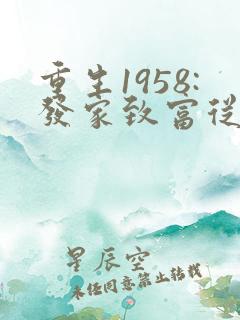 重生1958:
發家致富從
星辰空
未經同意禁止轉載